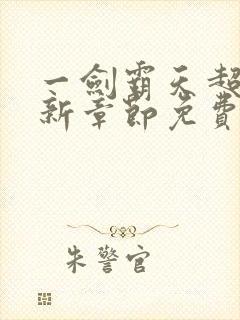 一劍霸天超
新章節免費
朱警官